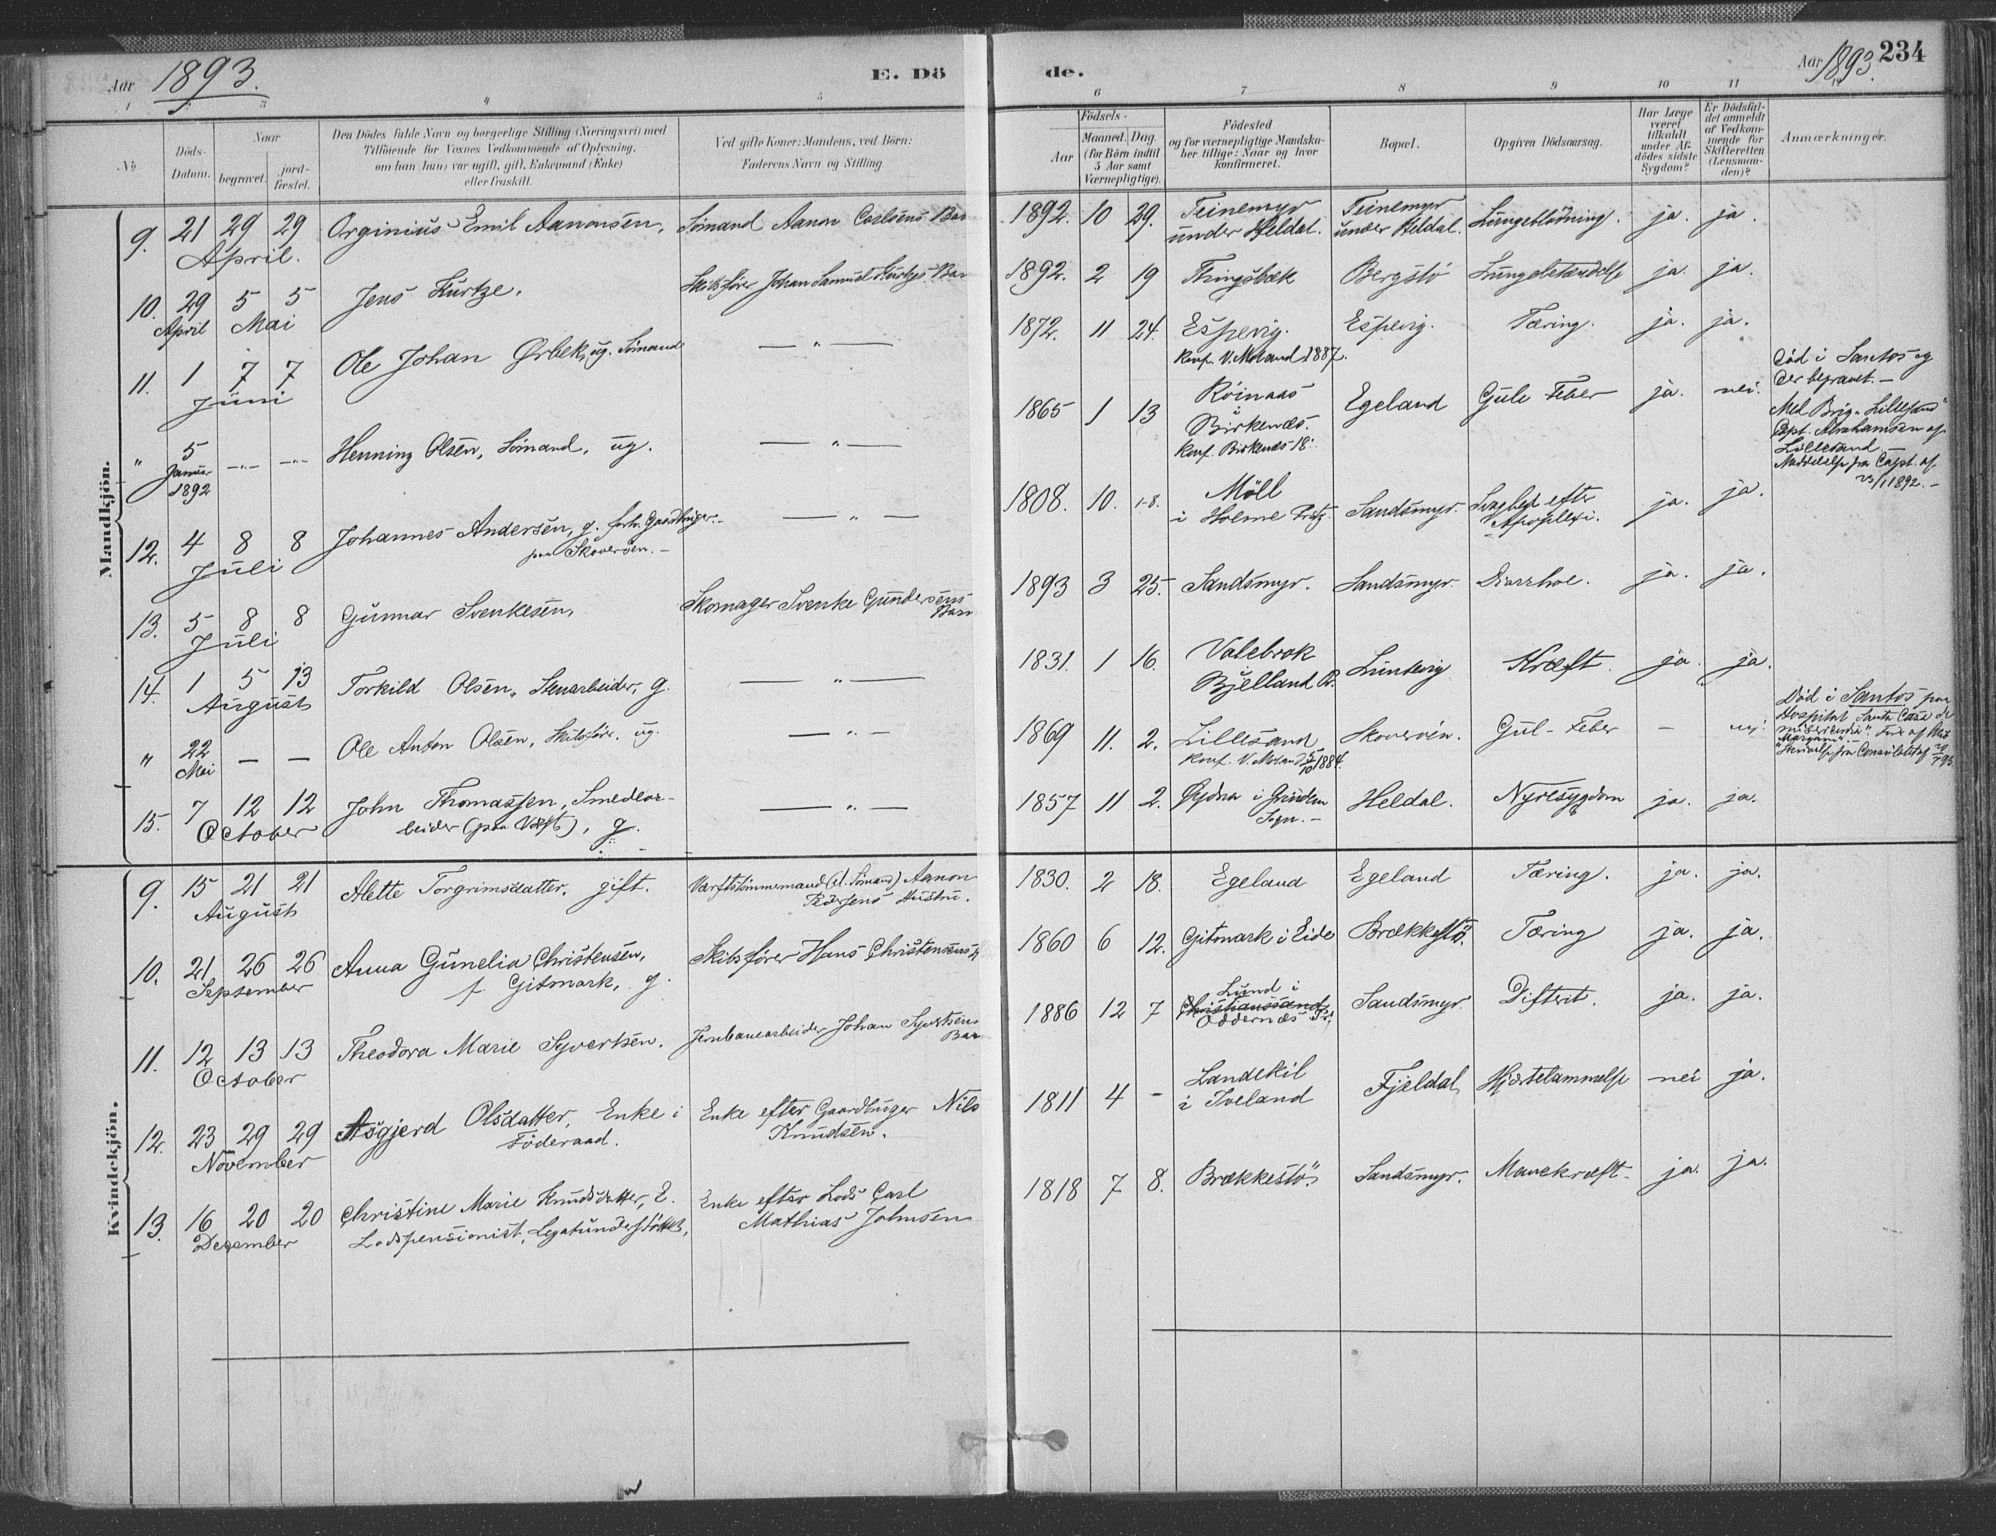 Aar 1893.
E. Dö
1 2 3 4 5
№
Döds-
Datum.
Naar
begravet.
jord-
fæstet.
Den Dödes fulde Navn og borgerlige Stilling (Næringsvei) med
Tilföiende for Voxnes Vedkommende af Oplysning,
om han (hun) var ugift, gift, Enkemand (Enke)
eller fraskilt.
Ved gifte Koner: Mandens, ved Börn:
Faderens Navn og Stilling.
Mandkjön.
9. 21 29 29 Orginius Emil Aanonsen, Sömand Aanon Carlsens Bar
April.
10. 29 5 5 Jens Kurtze. Skibsförer Johan Samuel Kurtzes Bar
April Mai
11. 1 7 7 Ole Johan Ørbek, ug. Sömand — " —
Juni
" 5 —"— —"— Henning Olsen, Sömand, ug. — " —
Januar
1892
12. 4 8 8 Johannes Andersen, g. forh. Gaardbruger. — " —
Juli paa Skoveröen. —
13. 5 8 8 Gunnar Svenkesen, Skomager Svenke Gundersens
Juli Barn
14. 1 5 13 Torkild Olsen, Stenarbeider, g. — " —
August
" 22 — — Ole Anton Olsen, Skibsförer, ug. — " —
Mai
15. 7 12 12 John Thomassen, Smedear-
October beider (paa Værft), g. — " —
Kvindekjön.
9. 15 21 21 Alette Torgrimsdatter, gift. Værftstömmermand (d. Sömand) Aanon
August Pedersens Hustru.
10. 21 26 26 Anna Gunelia Christensen, Skibsförer Hans Christensens H
September f. Gitmark, g.
11. 12 13 13 Theodora Marie Syvertsen. Jernbanearbeider Johan Syvertsens
October Bar
12. 23 29 29 Asgjerd Olsdatter, Enke i Enke efter Gaardbruger Nils
November Föderaad. Knudsen.
13. 16 20 20 Christine Marie Knudsdatter, E. Enke efter Lods Carl
Dezember Lodspensionist, Legatunderstöttet, Mathias Johnsen
de.
Aar 1893. 234
6 7 8 9 10 11 12
Födsels-
Aar
Maaned. Dag.
(for Börn indtil
5 Aar samt
Værnepligtige).
Födested
og for værnepligtige Mandska-
ber tillige: Naar og hvor
konfirmeret.
Bopæl.
Opgiven Dödsaarsag.
Har Læge
været
tilkaldt
under Af-
dödes sidste
Sygdom?
Er Dödsfal-
det anmeldt
af Vedkom-
mende for
Skifteretten
(Lensman-
den)?
Anmærkninger.
1892. 10 29. Teinemyr Teinemyr Lungeblödning. ja. ja.
under Heldal. under Heldal.
1892. 2 19 Thingsbæk Bergstö Lungebetændelse ja. ja.
1872. 11 24. Espevig. Espevig. Tæring. ja. ja.
Konf. V. Moland 1887.
1865 1 13 Röinaas Egeland Gule Feber ja. nei.
i
Birkenæs.
Konf. Birkenæs 18
Död i Santos og
der begravet. —
Med Brig „Lillesand"
Capt. Abrahamsen af
Lillesand —
Meddelelse fra Capt. af
23/1 1892. —
1808. 10. 18. Möll Sandsmyr. Svaghed efter ja. ja.
i Holme Prstg. Apoplexi.
1893 3 25. Sandsmyr. Sandsmyr. Diarrhoe. ja. ja.
1831. 1 16. Valebrok Luntevig Kræft. ja. ja.
Bjelland P.
1869 11. 2. Lillesand Skoveröen. Gul-Feber — nei.
Konf. V. Moland 5/10 1884.
Död i Santos paa
Hospital Santa Casa de
misericordia".
1857 11 2. Øydna i Grindem Heldal. Nyresygdom ja. ja.
Sogn. —
1830. 2 18. Egeland Egeland Tæring. ja. ja.
1860 6 12. Gitmark i Eide Brækkestö. Tæring ja. ja.
Lund i
1886 12 7 Christianssand Sandsmyr. Difterit. ja. ja.
Oddernæs
1811 4 - Landekil Fjeldal Hjertelammelse nei ja.
i Iveland
1818 7 8. Brækkestö. Sandsmyr. Mavekræft. ja. ja.